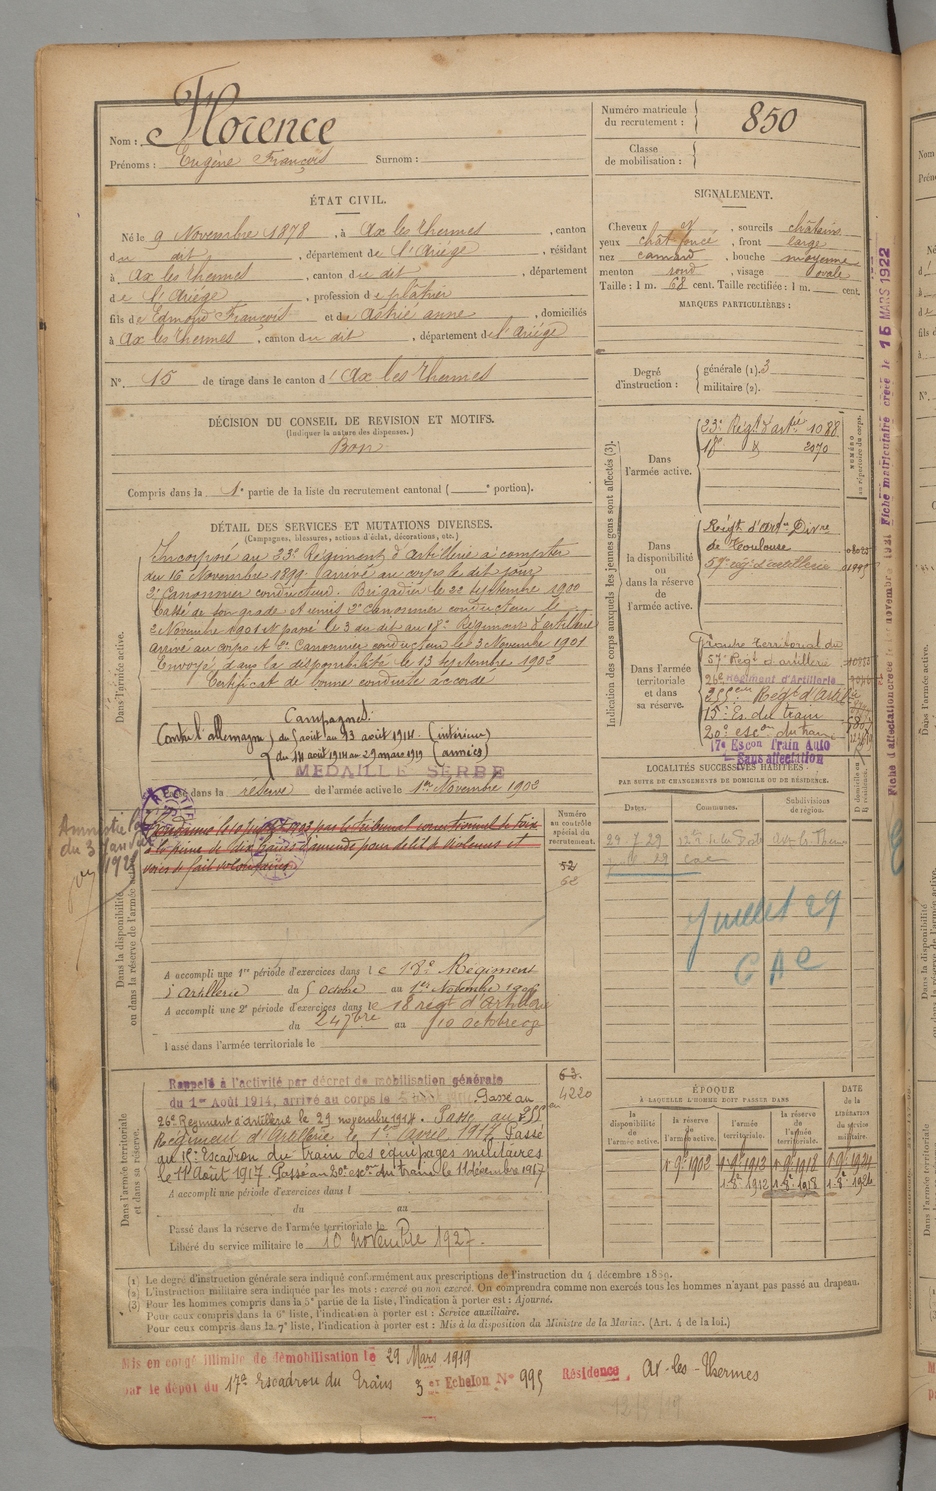 Nom : Florence
Prénoms : Eugène François Surnom :
Numéro matricule du recrutement : 850
Classe de mobilisation :
ÉTAT CIVIL.
Né le 9 Novembre 1878, à Ax les Thermes, canton
du dit, département de l'Ariège, résidant
à Ax les Thermes, canton du dit, département
de l'Ariège, profession de plâtrier
fils de Edmond François et de Astrié anne, domiciliés
à Ax les Thermes, canton du dit, département de l'Ariège
N° 15 de tirage dans le canton d' Ax les Thermes
SIGNALEMENT.
Cheveux et, sourcils châtains
yeux chât foncé, front large
nez camard, bouche moyenne
menton rond, visage ovale
Taille : 1 m. 68 cent. Taille rectifiée : 1 m. cent.
MARQUES PARTICULIÈRES :
Degré d'instruction : générale (1). 3
militaire (2).
DÉCISION DU CONSEIL DE REVISION ET MOTIFS.
(Indiquer la nature des dispenses.)
Bon
Compris dans la 1e partie de la liste du recrutement cantonal ( e portion).
DÉTAIL DES SERVICES ET MUTATIONS DIVERSES.
(Campagnes, blessures, actions d'éclat, décorations, etc.)
Dans l'armée active.
Incorporé au 23e Régiment d'Artillerie à compter
du 16 Novembre 1899 arrivé au corps le dit jour
2e Canonnier conducteur. Brigadier le 22 septembre 1900
Cassé de son grade et remis 2e Canonnier conducteur le
2 Novembre 1901 et passé le 3 du dit au 18e Régiment d'artillerie
arrivé au corps et 2e Canonnier conducteur le 3 Novembre 1901
Envoyé dans la disponibilité le 13 septembre 1902
Certificat de bonne conduite accordé
Campagnes :
Contre l'allemagne du août au 13 août 1914 (intérieur)
du 14 août 1914 au 29 mars 1919 (armées)
MEDAILLE SERBE
dans la réserve de l'armée active le 1er Novembre 1902
Amnistie
du 3 Janvier
1925
RECTIF
Dans la disponibilité ou dans la réserve de l'armée active.
1903 par le tribunal correctionnel de Foix
à la peine de dix francs d'amende pour délit de violences et
voies de fait volontaires
A accompli une 1re période d'exercices dans le 18e Régiment
d'Artillerie du 5 octobre au 1er Novembre
A accompli une 2e période d'exercices dans le 18 régt d'Artillerie
du 24 7bre au 10 octobre
Passé dans l'armée territoriale le
Numéro au contrôle spécial du recrutement.
52
62
Dans l'armée territoriale et dans sa réserve.
Rappelé à l'activité par décret de mobilisation générale
du 1er Août 1914, arrivé au corps le Passé au
26e Régiment d'artillerie le 29 novembre 1914. Passé au 255e
Régiment d'Artillerie le 1er Avril 1917 Passé
au 15e Escadron du train des équipages militaires
le 11 Août 1917. Passé au 20e escon du train le 11 décembre 1917
A accompli une période d'exercices dans l
du au
Passé dans la réserve de l'armée territoriale le
Libéré du service militaire le 10 novembre 1927.
63.
4220
Indication des corps auxquels les jeunes gens sont affectés (3).
NUMÉRO au répertoire du corps.
Dans l'armée active.
23e Régt d'artie 1088
18 d 2070
Dans la disponibilité ou dans la réserve de l'armée active.
Régt d'Artie Divre
de Toulouse
57e rég d'artillerie
Dans l'armée territoriale et dans sa réserve.
Groupe territorial du
57e Régt d'artillerie
26e Régiment d'Artillerie
255eme Régt d'Artie
15e Es. du train
20e escon du train
17e Escon Train Auto
Sans affectation
LOCALITÉS SUCCESSIVES HABITÉES
PAR SUITE DE CHANGEMENTS DE DOMICILE OU DE RÉSIDENCE.
D domicile ou R résidence.
Dates. Communes. Subdivisions de région.
Juillet 29
CAC
ÉPOQUE
À LAQUELLE L'HOMME DOIT PASSER DANS
DATE DE LA LIBÉRATION DU SERVICE MILITAIRE.
la disponibilité de l'armée active. la réserve de l'armée active. l'armée territoriale. la réserve de l'armée territoriale.
1-9e-1902 1-9e-1912 1-9e-1918 1-9e-1924
1-8e-1912 1-8e-1918 1-8e-1924
Fiche d'affectation créée le novembre 1921 Fiche matriculaire créée le 15 MARS 1922
(1) Le degré d'instruction générale sera indiqué conformément aux prescriptions de l'instruction du 4 décembre 1889.
(2) L'instruction militaire sera indiquée par les mots : exercé ou non exercé. On comprendra comme non exercés tous les hommes n'ayant pas passé au drapeau.
(3) Pour les hommes compris dans la 5e partie de la liste, l'indication à porter est : Ajourné.
Pour ceux compris dans la 6e liste, l'indication à porter est : Service auxiliaire.
Pour ceux compris dans la 7e liste, l'indication à porter est : Mis à la disposition du Ministre de la Marine. (Art. 4 de la loi.)
Mis en congé illimité de démobilisation le 29 Mars 1919
par le dépôt du 17e Escadron du Train 3 eme Echelon N° 995 Résidence, Ax-les-Thermes